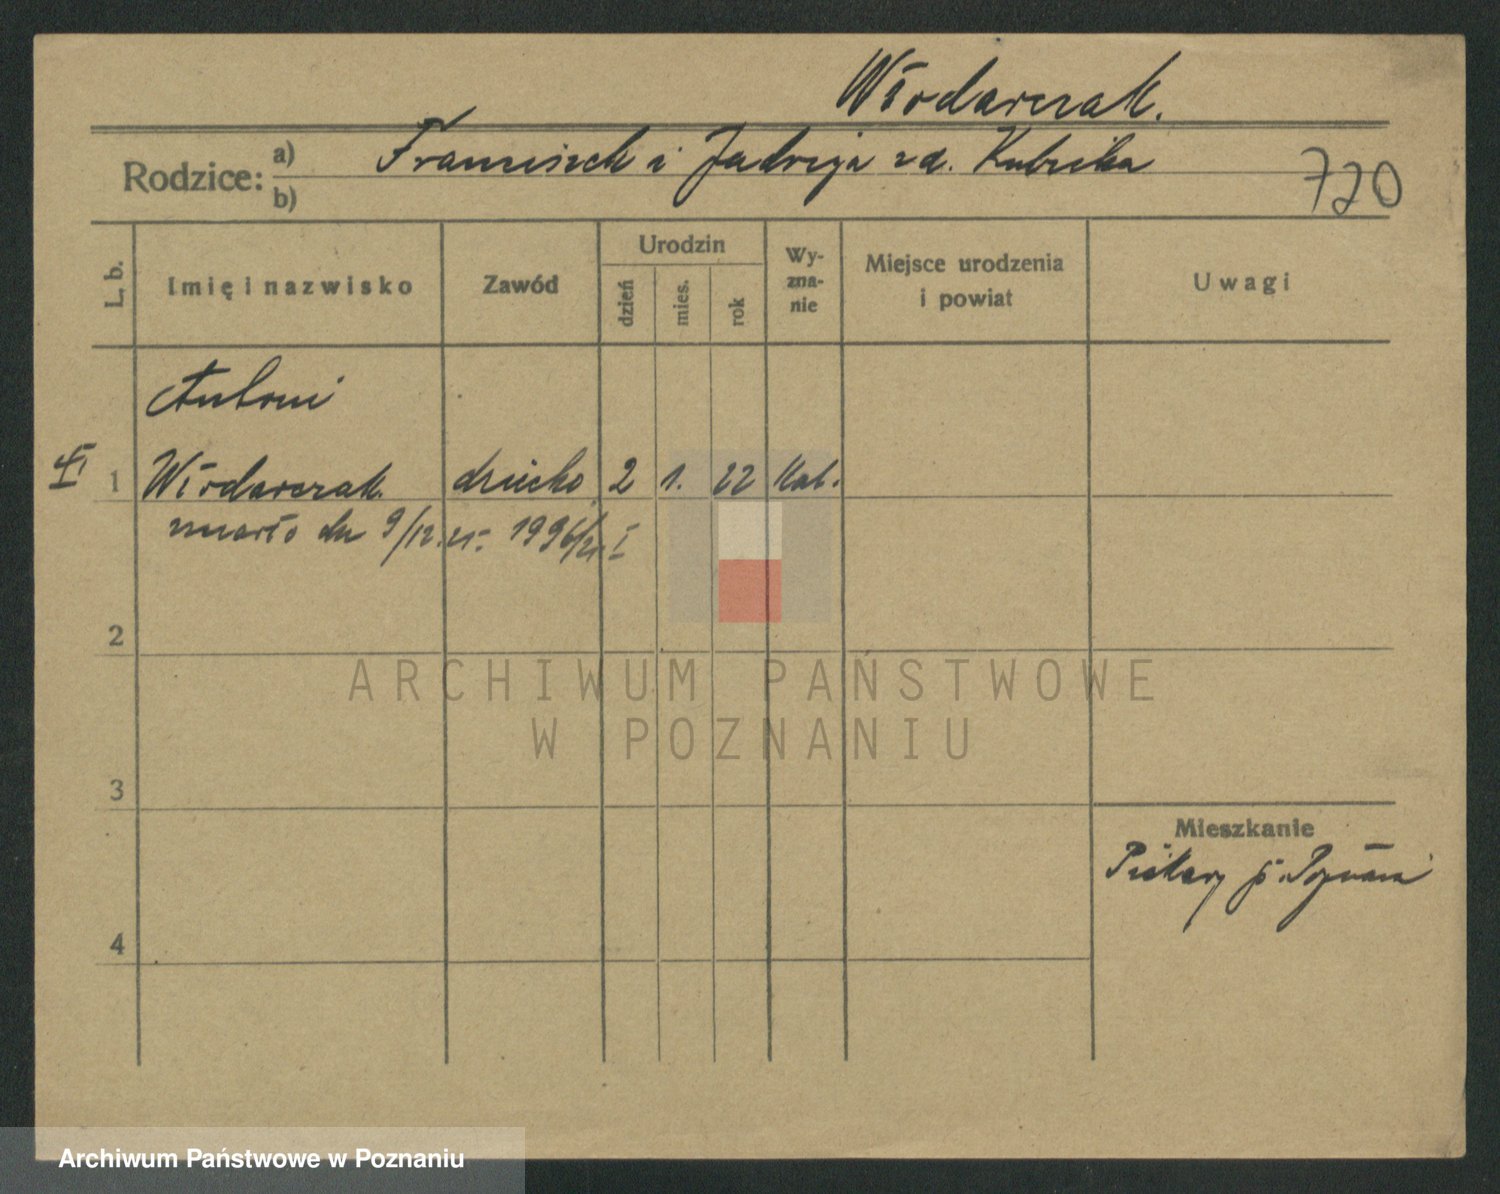 Włodarczak.
Rodzice: a) Franciszek i Jadwiga zd. Kubicka
b)
720
L. b.
Imię i nazwisko
Zawód
Urodzin
dzień
mies.
rok
Wy-
zna-
nie
Miejsce urodzenia
i powiat
Uwagi
Antoni
1 Włodarczak. dziecko 2 1. 22 Kat.
zmarło dn 9/12. I
2
ARCHIWUM PAŃSTWOWE
W POZNANIU
3
Mieszkanie
Piekary
4
Archiwum Państwowe w Poznaniu